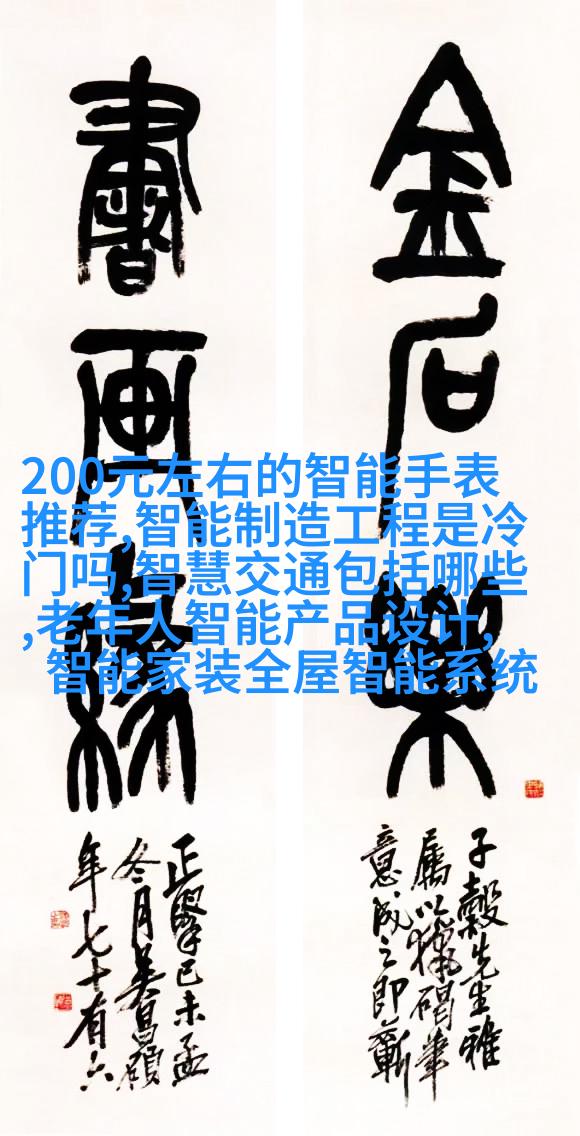 金石樂
子穀先生雅
屬以獵碣筆
意成之即蘄
書画緣
正擘己未孟
冬月吳昌碩
年七十有六
200元左右的智能手表
推荐,智能制造工程是冷
门吗,智慧交通包括哪些
,老年人智能产品设计,
智能家装全屋智能系统